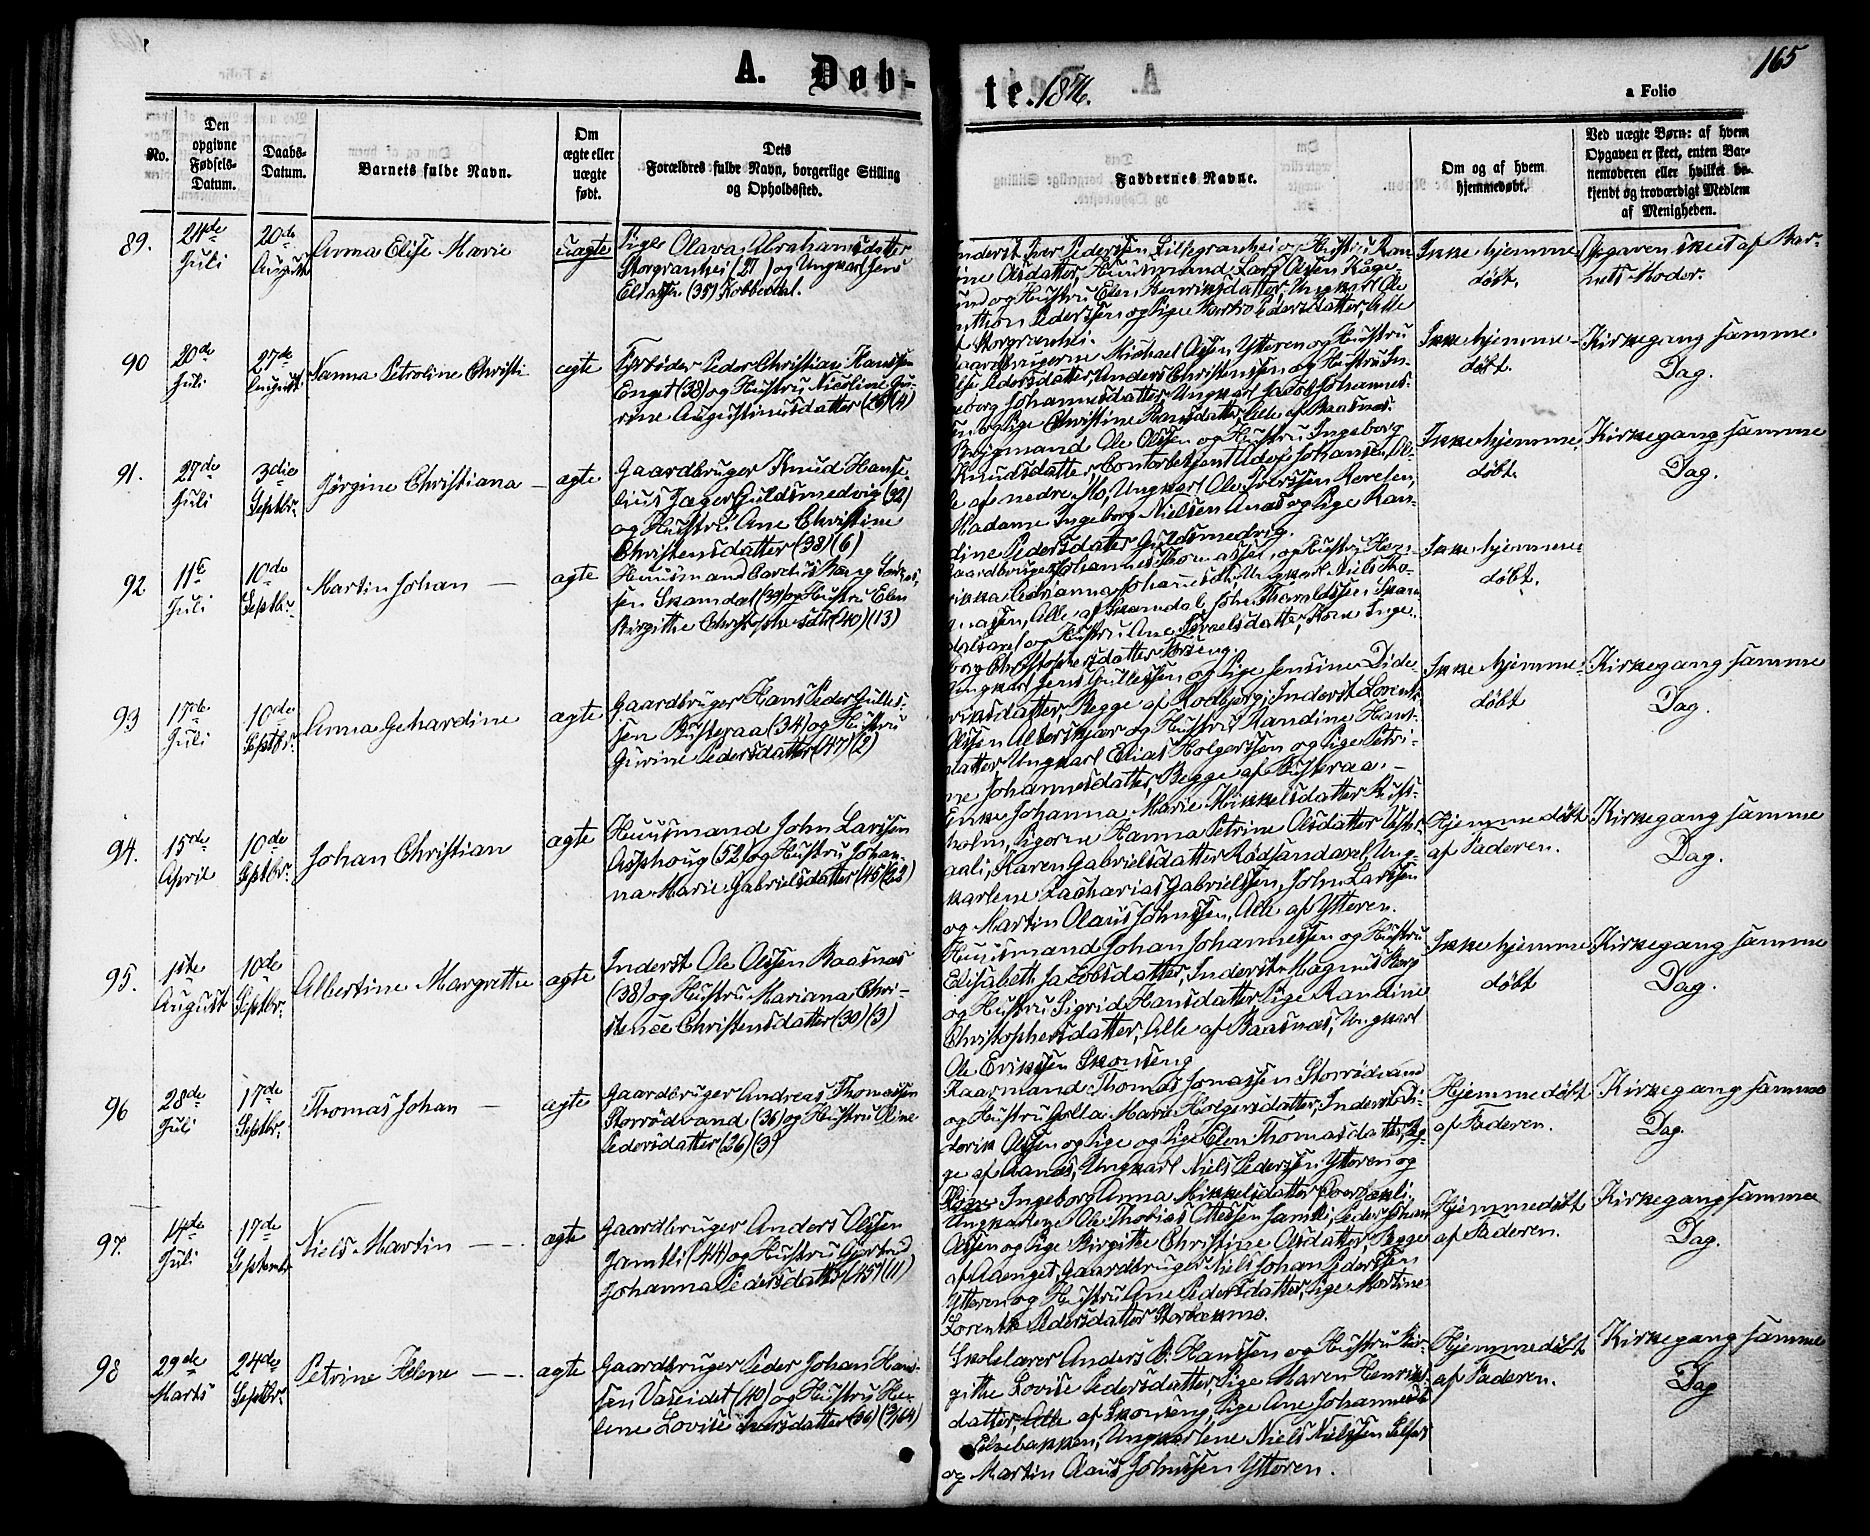 165
A. Døb-
te. 1876.
a Folio
No.
Den
opgivne
Fødsels-
Datum.
Daabs-
Datum.
Barnets fulde Navn.
Om
ægte eller
uægte
født.
Dets
Forældres fulde Navn, borgerlige Stilling
og Opholdssted.
Faddernes Navne.
Om og af hvem
hjemmedøbt.
Ved uægte Børn: af hvem
Opgaven er skeet, enten Bar-
nemoderen eller hvilket be-
kjendt og troværdigt Medlem
af Menigheden.
89.
24de
Juli
20de
August
Anna Elise Marie
uægte
Pige Olava Abrahamsdatter
Storgranhei (27) og Ungkarl Jens
(35)
Inderst Iver Pederssen Lillegranhei og Hustru
Olsdatter, Huusmand Lars Olssen
og Hustru Elen Henriksdatter, Ungkarl Ole
Pederssen og Pige Pedersdatter, Alle
af Storgranhei.
Ikke hjemme-
døbt.
Opgaven skeet af Bar-
nets Moder.
90
20de
Juli
27de
August
Nanna Petroline Christi
ægte
Peder Christian Hanssen
Enget (38) og Hustru Nicoline
Augustinusdatter (26) (4)
Gaardbrugerne Michael Olssen, Ytteren og Hustru
Pedersdatter, Anders Christenssen og Hustru In-
geborg Johannesdatter, Ungkarl Jacob Johannes-
sen og Pige Christine Hansdatter, Alle af Baasnæs.
Ikke hjemme-
døbt.
Kirkegang samme
Dag.
91.
27de
Juli
3die
Septbr.
Jørgine Christiana
ægte
Gaardbruger Knud Hanse-
lius Jager Guldsmedvig (32)
og Hustru Ane Christine
Christensdatter (38) (6)
Ole Olssen og Hustru Ingeborg
Knudsdatter, Contorbetjent Adof Johansen, Al-
le af nedre Mo, Ungkarl Ole
Madame Ingeborg Nielsen og Pige Ran-
dine Pedersdatter Guldsmedvig.
Ikke hjemme-
døbt.
Kirkegang samme
Dag.
92
11te
Juli
10de
Septbr.
Martin Johan
ægte
Huusmand
sen Skamdal (39) og Hustru Elen
Birgithe Christophersdtr (40) (13)
Gaardbruger Johannes Thomassen og Hustru
Adrianna Johannesdtr, Ungkarl Niels Tho-
massen, Alle af Skamdal,
og Hustru Ane Israelsdatter, Kone Inge-
borg Christophersdatter
Ikke hjemme-
døbt.
93
17de
Juli
10de
Septbr.
Anna Gehardine
ægte
Gaardbruger Hans Peder Gulles-
sen Busteraa (34) og Hustru
Gurine Pedersdatter (47) (2)
Ungkarl Jens Gullessen og Pige Jensine Dide-
riksdatter, Begge af Rødbjerg; Inderst Lorents
Olssen og Hustru Randine Hans-
datter, Ungkarl Elias Holgerssen og Pige Petri-
ne Johannesdatter, Begge af Busteraa.
Ikke hjemme-
døbt
Kirkegang samme
Dag.
94.
15de
April
10de
Septbr.
Johan Christian
ægte
Huusmand John Larssen
Asphoug (52) og Hustru Johan-
na Marie Gabrielsdatter (45) (22)
Enke Johanna Marie Mikkelsdatter
holm, Pigerne Hanna Petrine Olsdatter
Karen Gabrielsdatter Rødsandaxel, Ung-
karlene Zacharias Gabrielssen, John Larssen
og Martin Olaus Johnssen, Alle af Ytteren.
Hjemmedøbt
af Faderen.
Kirkegang samme
Dag.
95.
1ste
August
10de
Septbr.
Albertine Margrethe
ægte
Inderst Ole Olssen Baasnæs
(38) og Hustru Mariana Chri-
stence Christensdatter (30) (3)
Huusmand Johan Johannessen og Hustru
Elisabeth Jacobsdatter, Inderst Magnus
og Hustru Sigrid Hansdatter, Pige Randine
Christophersdatter, Alle af Baasnæs, Ungkarl
Ole Erikssen Skonseng
Ikke hjemme
døbt
Kirkegang samme
Dag.
96
28de
Juli
17de
Septbr.
Thomas Johan
ægte
Gaardbruger Andreas Thomassen
Storrødvand (36) og Hustru Oline
Pedersdatter (26) (3)
Kaarmand Thomas Jonassen Storrødvand
og Hustru Golla Marie Holgersdatter, Inderst Di-
derik Olssen og Pige og Pige Elen Thomasdatter, Beg-
ge af Aanæs, Ungkarl Niels Pederssen Ytteren og
Kone Ingeborg Anna Mikkelsdatter
Hjemmedøbt
af Faderen.
Kirkegang samme
Dag.
97.
14de
Juli
17de
Septembr
Niels Martin
ægte
Gaardbruger Anders Olssen
Jamtli (44) og Hustru Gjertrud
Johanna Pedersdatter (45) (11)
Ungkarlene Ole Thobias Ottessen Jamtli, Peder Johan
Olssen og Pige Birgithe Christine Olsdatter, Begge
af Aaenget, Gaardbruger Nils Johan Pederssen
Ytteren og Hustru Ane Pedersdatter, Pige Martine
Lorentse Pedersdatter
Hjemmedøbt
af Faderen.
Kirkegang samme
Dag.
98
29de
Marts
24de
Septbr.
Petrine Helene
ægte
Gaardbruger Peder Johan Hans-
sen Vaseidet (40) og Hustru He-
lene Lovise Iversdatter (36)
Skolelærer Anders B. Hanssen og Hustru Bir-
githe Lovise Pedersdatter, Pige Maren Henriks-
datter, Alle af Skonseng, Pige Ane Johannesdtr
Elvebakken, Ungkarlene Niels Nielssen Selfors
og Martin Olaus Johnssen Ytteren.
Hjemmedøbt
af Faderen.
Kirkegang samme
Dag